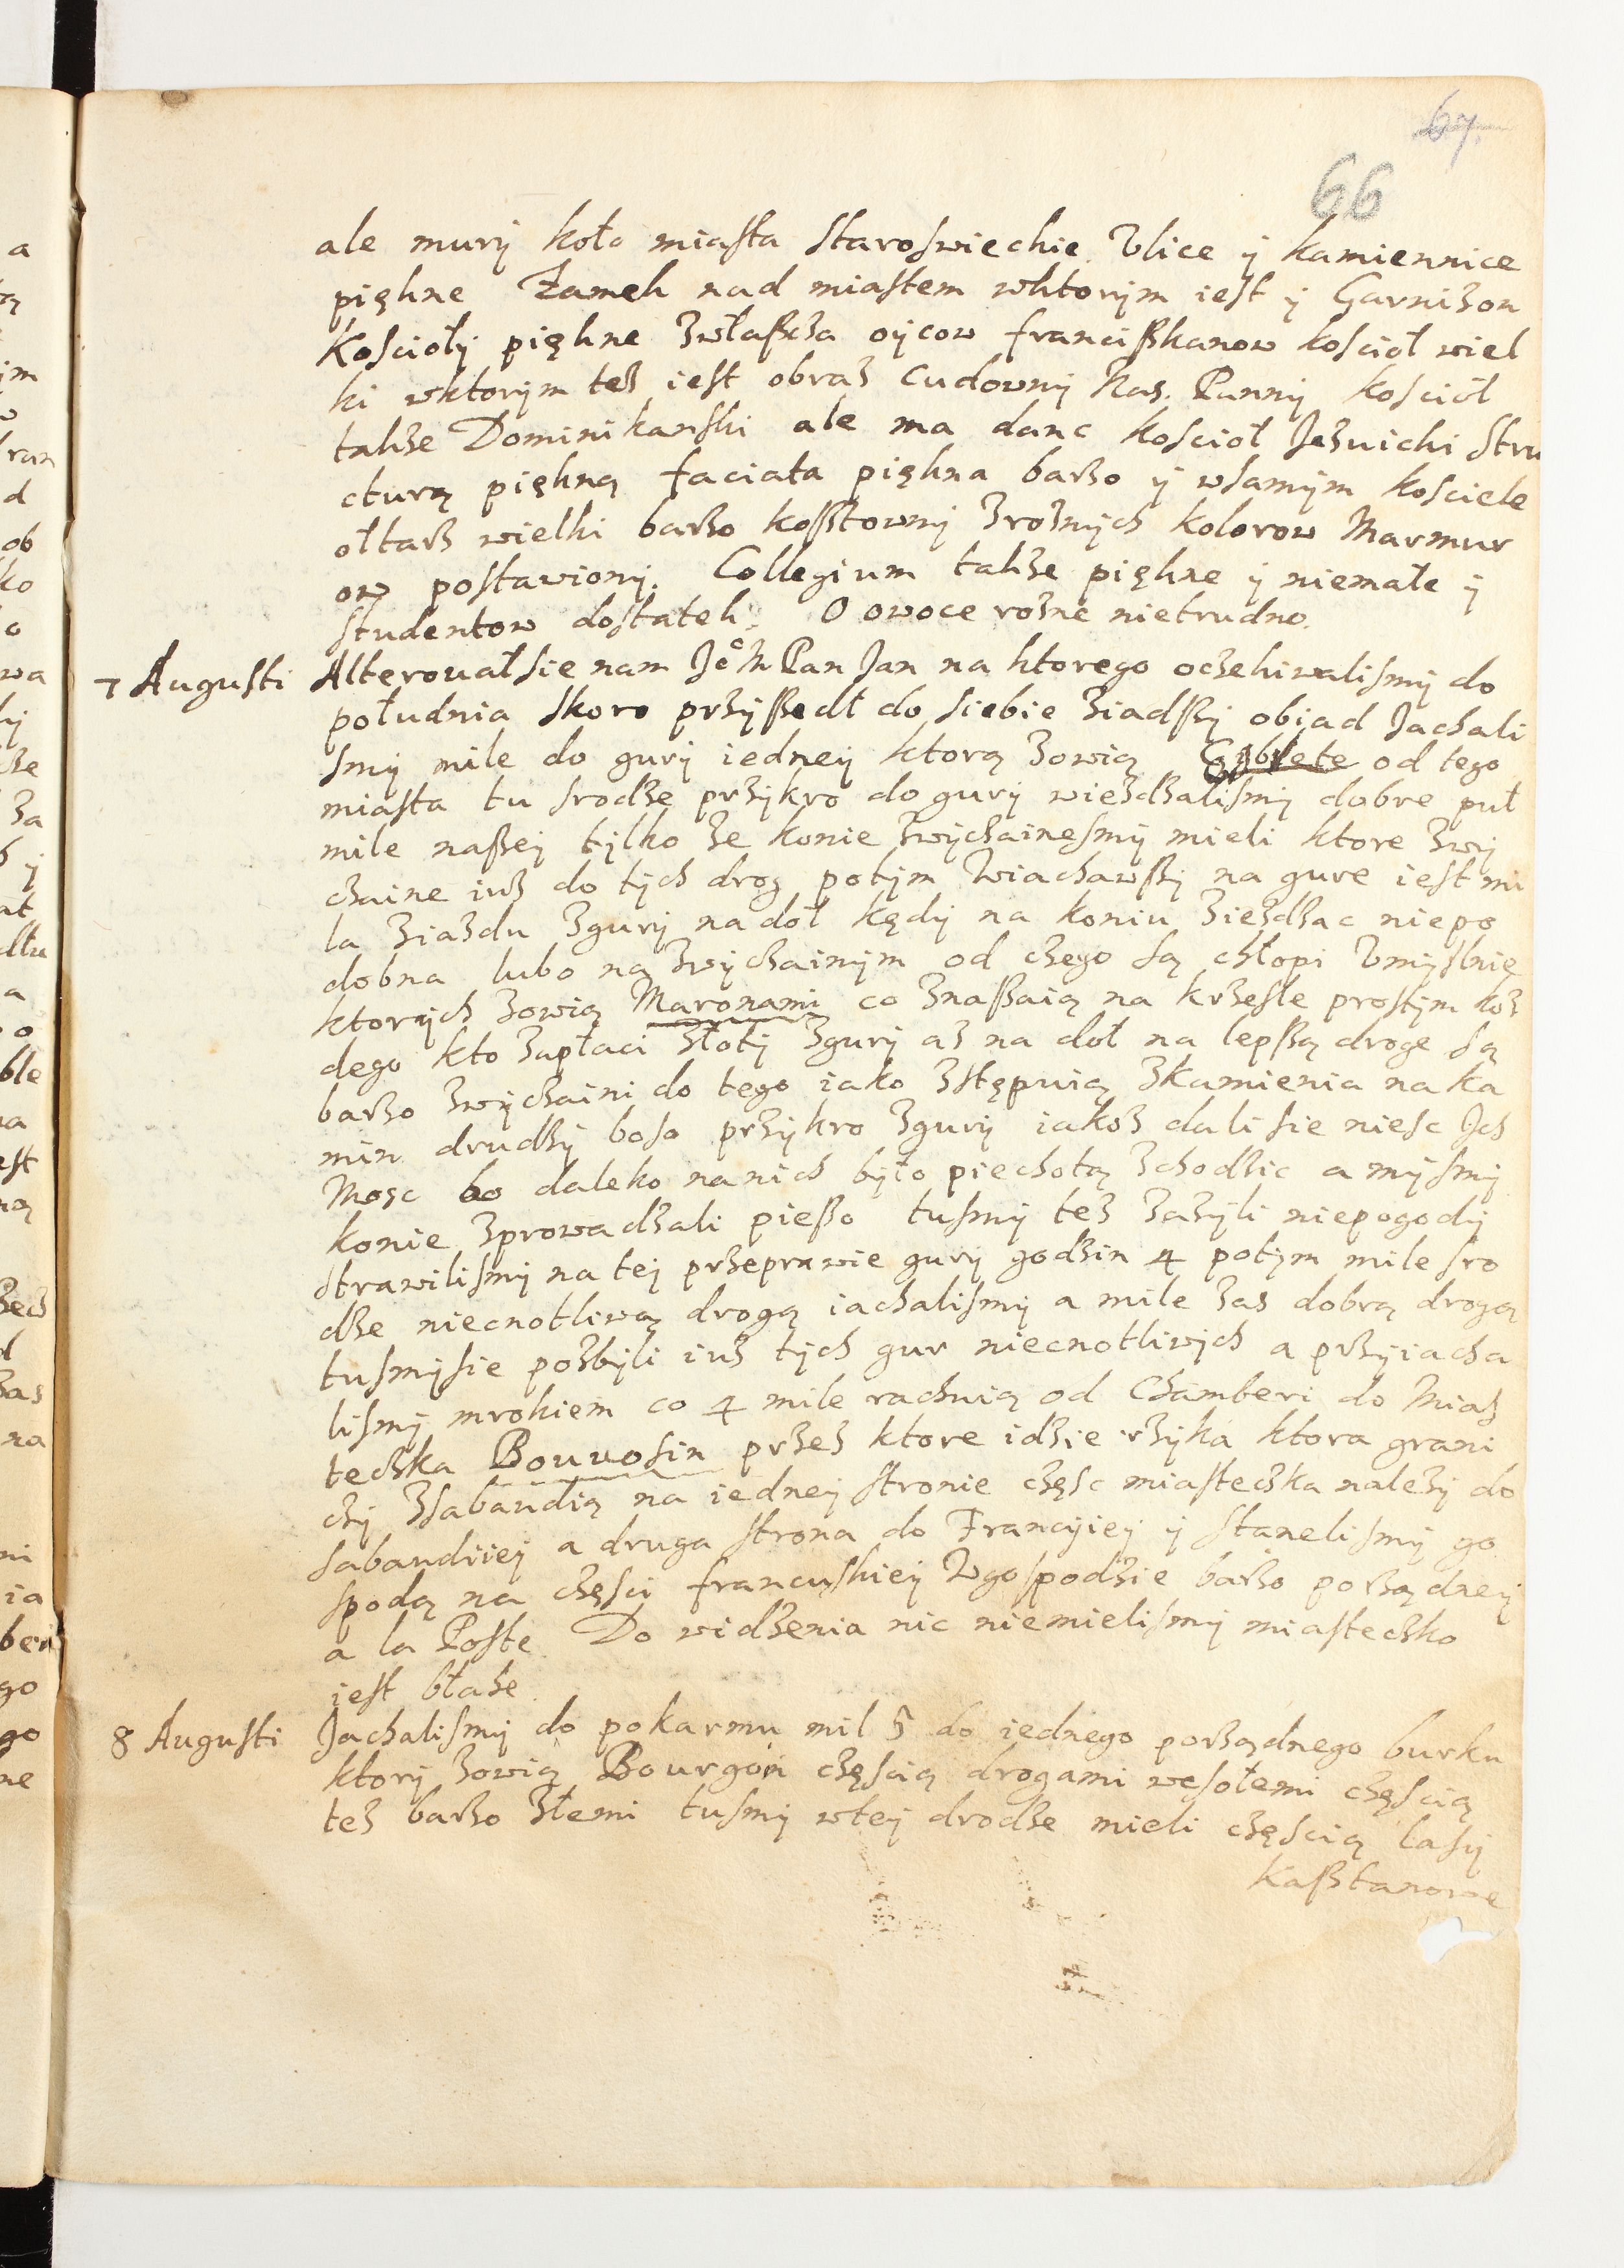 67.
66
ale mury koło miasta staroswieckie. Vlice y kamiennice
piękne Zamek nad miastem wktorym iest y Garnizon
Koscioły piękne zwłaszcza oycow franciszkanow kosciół wiel
ki wktorym tez iest obraz cudowny Nas. Panny kosciół
takze Dominikanski ale ma danc kosciół Jezuicki stru
cturą piękną faciata piękna barzo y wsamym kosciele
ołtarz wielki barzo kosztowny zroznych kolorow Marmur
ow postawiony. Collegium takze piękne y niemałe y
studentow dostatek. O owoce rozne nietrudno.
7 Augusti Alterowałsie nam JeoM Pan Jan na ktorego oczekiwalismy do
południa skoro przyszedł do siebie ziadszy obiad Jachali
smy mile do gury iedney ktorą zowią od tego
miasta tu srodze przykro do gury wiezdzalismy dobre puł
mile naszey tylko ze konie zwyczainesmy mieli ktore zwy
czaine iuz do tych drog potym Wiachawszy na gure iest mi
la ziazdu zgury na doł kędy na koniu ziezdzac niepo
dobna lubo na zwyczainym od czego są chłopi Vmyslnie
ktorych zowią Maronami co znaszaią na krzesle prostym koz
dego kto zapłaci złoty zgury az na doł na lepszą droge są
barzo zwyczaini do tego iako zstępuią zkamienia na ka
min drudzy boso przykro zgury iakoz dali sie niesc Jch
Mosc bo daleko nanich było piechotą zchodzic a mysmy
konie zprowadzali pieszo tusmy tez zazyli niepogody
strawilismy na tey przeprawie gury godzin 4 potym mile sro
dze niecnotliwą drogą iachalismy a mile zas dobrą drogą
tusmysie pozbyli iuz tych gur niecnotliwych a przyiacha
lismy mrokiem co 4 mile rachuią od Chamberi do Mias
teczka Bouvosin przez ktore idzie rzyka ktora grani
czy zsabaudią na iedney stronie częsc miasteczka nalezy do
sabaudiiey a druga strona do Francyiey y stanelismy go
spodą na częsci francuskiey Wgospodzie barzo porządney
a la Poste. Do widzenia nic niemielismy miasteczko
iest błaze.
8 Augusti Jachalismy do pokarmu mil 5 do iednego porządnego burku
ktory zowią Bourgoin częscią drogami wesołemi częscią
tez barzo złemi tusmy wtey drodze mieli częscią lasy
Kasztanowe